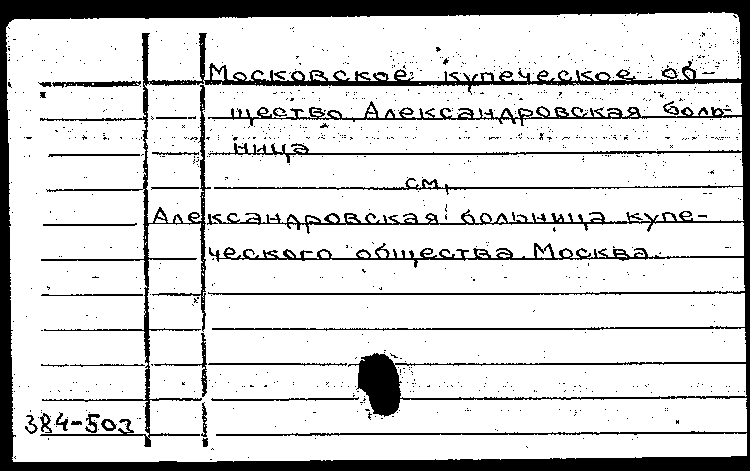 Московское купеческое об-
щество. Александровская боль-
ница
см.
Александровская больница купе-
ческого общества. Москва.
384-503